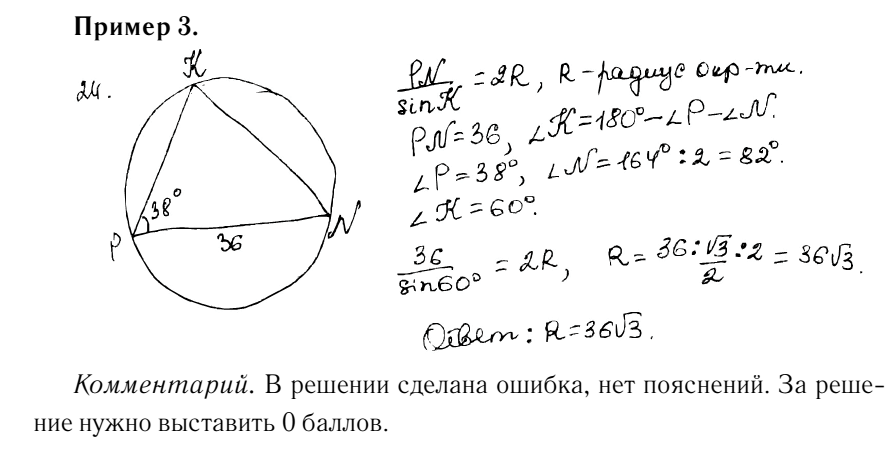 Пример 3.
24.
K
38°
P
36
N
PN/sinK = 2R, R - радиус окр-ти.
PN = 36, ∠K = 180° - ∠P - ∠N.
∠P = 38°, ∠N = 164° : 2 = 82°.
∠K = 60°.
36/sin60° = 2R, R = 36 : √3/2 : 2 = 36√3.
Ответ: R = 36√3.
Комментарий. В решении сделана ошибка, нет пояснений. За реше-
ние нужно выставить 0 баллов.